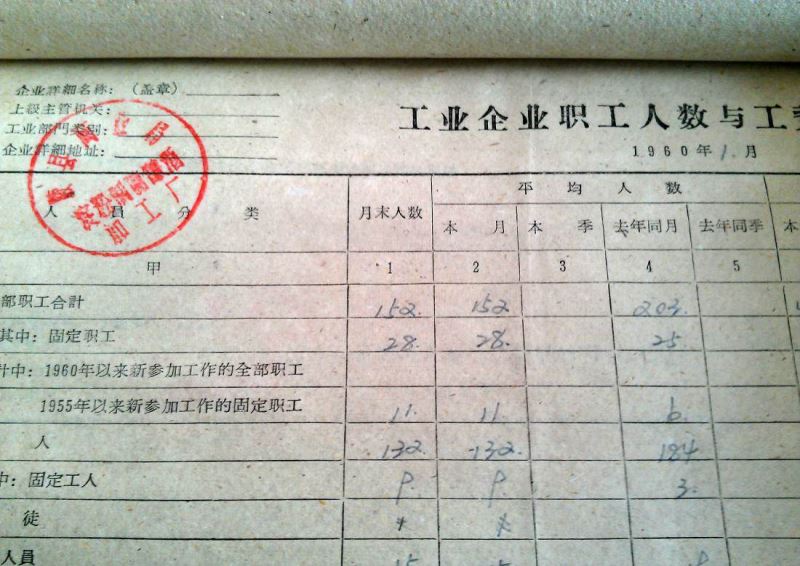 企业詳細名称: (盖章)
上級主管机关:
工业部門类別:
企业詳細地址:
工业企业职工人数与工
1960年1月
加工厂
人員分类
月末人数
平均人数
本月
本季
去年同月
去年同季
本
甲 1 2 3 4 5
部职工合計 152. 152 203.
其中: 固定职工 28. 28. 25
計中: 1960年以来新参加工作的全部职工
1955年以来新参加工作的固定职工 11. 11. 6.
人 132 132. 184
中: 固定工人 3.
徒
人員 15